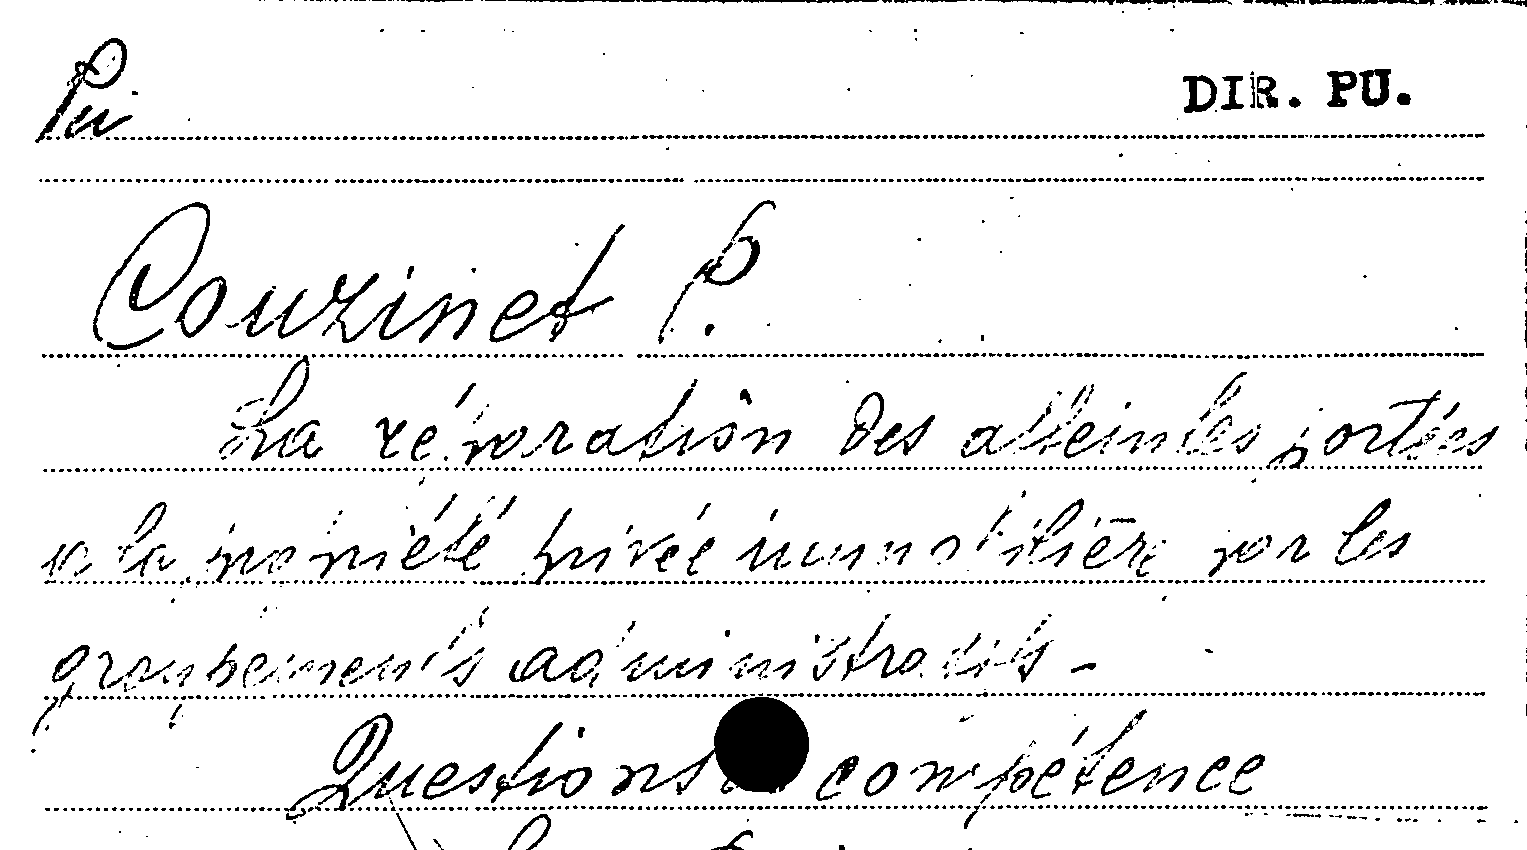 DIR. PU.
Couzinet P.
La réparation des atteintes portées
à la propriété privée immobilière par les
groupements administratifs -
Questions compétence